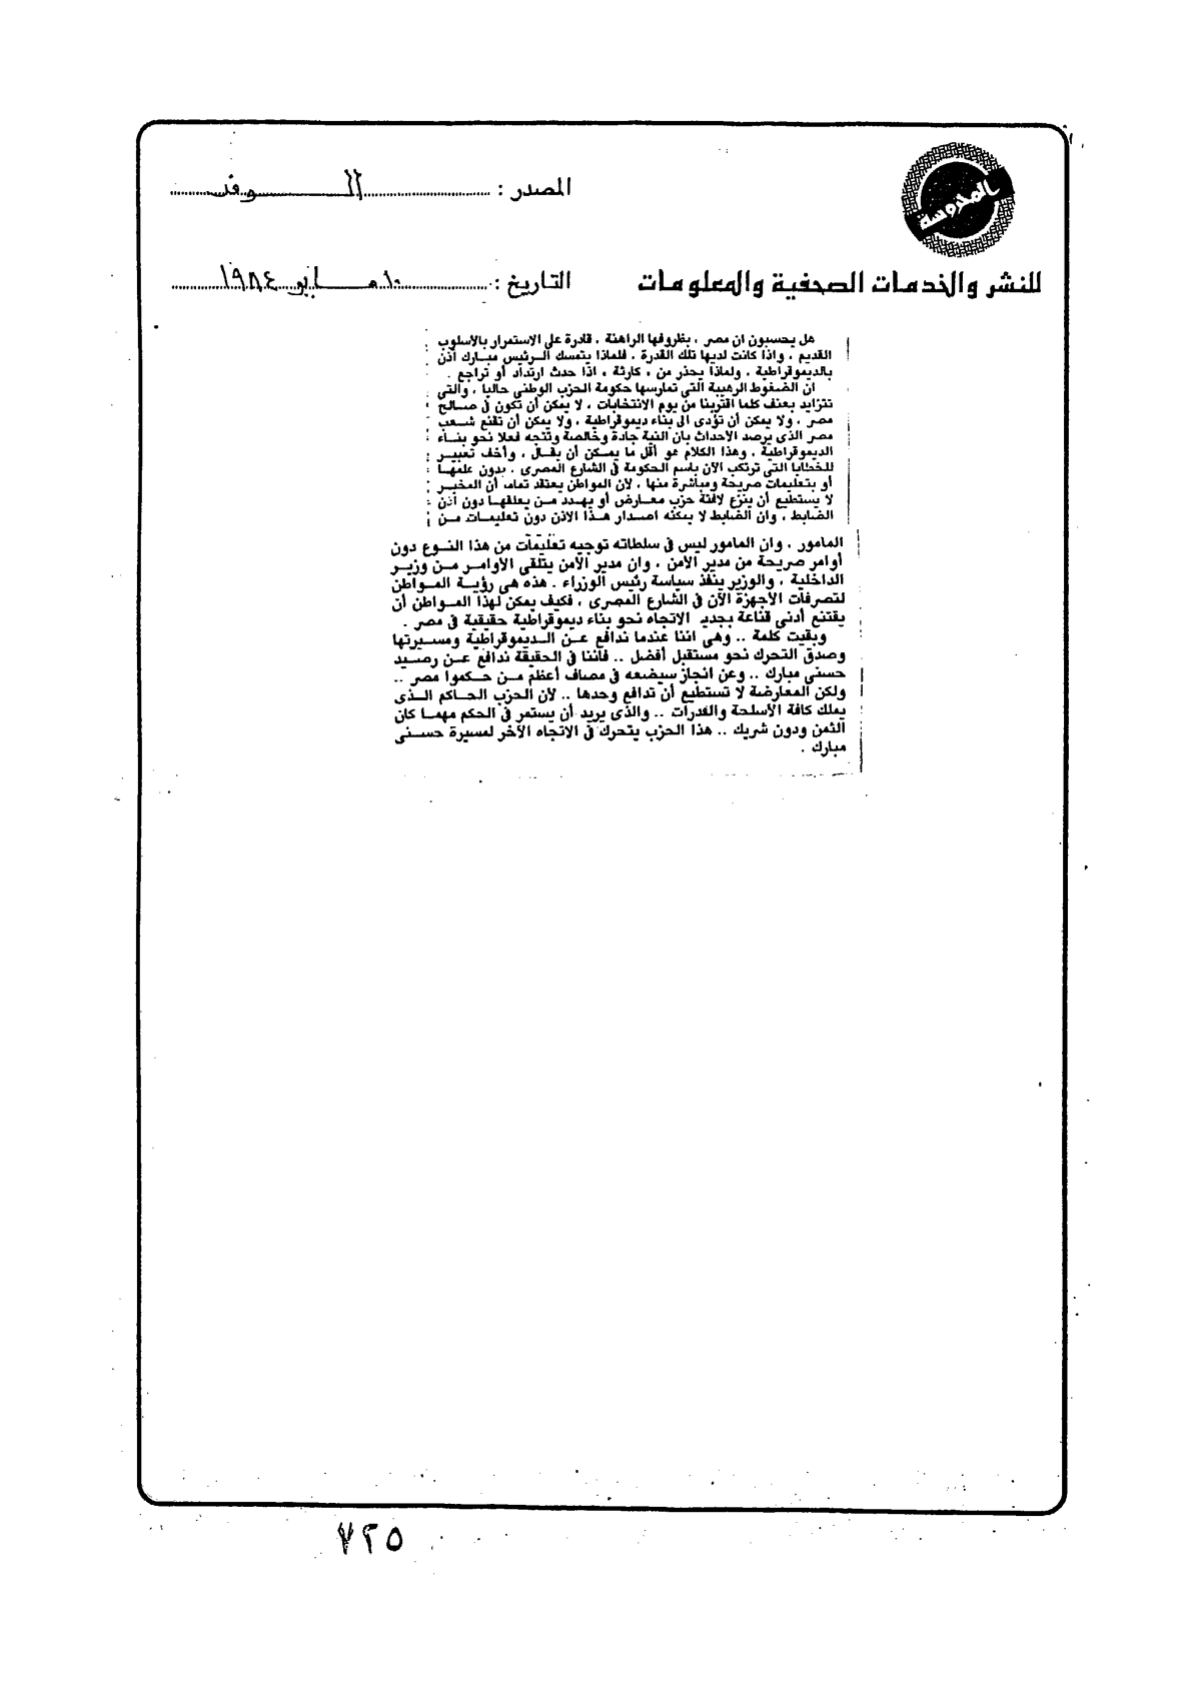 المحروسة
المصدر : الوفد
للنشر والخدمات الصحفية والمعلومات
التاريخ : ١٠ مايو ١٩٨٤
هل يحسبون ان مصر ، بظروفها الراهنة ، قادرة على الاستمرار بالأسلوب
القديم ، واذا كانت لديها تلك القدرة ، فلماذا يتمسك الرئيس مبارك أذن
بالديموقراطية ، ولماذا يحذر من « كارثة » اذا حدث ارتداد أو تراجع .
ان الضغوط الرهيبة التى تمارسها حكومة الحزب الوطنى حاليا ، والتى
تتزايد بعنف كلما اقتربنا من يوم الانتخابات ، لا يمكن أن تكون فى صالح
مصر ، ولا يمكن أن تؤدى الى بناء ديموقراطية ، ولا يمكن أن تقنع شعب
مصر الذى يرصد الأحداث بأن النية جادة وخالصة وتتجه فعلا نحو بناء
الديموقراطية ، وهذا الكلام هو أقل ما يمكن أن يقال ، وأخف تعبير
للخطايا التى ترتكب الآن باسم الحكومة فى الشارع المصرى ، بدون علمها
أو بتعليمات صريحة ومباشرة منها ، لأن المواطن يعتقد تماما أن المخبر
لا يستطيع أن ينزع لافتة حزب معارض أو يهدد من يعلقها دون أذن
الضابط ، وان الضابط لا يمكنه اصدار هذا الاذن دون تعليمات من
المامور ، وان المامور ليس فى سلطاته توجيه تعليمات من هذا النوع دون
أوامر صريحة من مدير الأمن ، وان مدير الأمن يتلقى الأوامر من وزير
الداخلية ، والوزير ينفذ سياسة رئيس الوزراء . هذه هى رؤية المواطن
لتصرفات الأجهزة الآن فى الشارع المصرى ، فكيف يمكن لهذا المواطن أن
يقتنع أدنى قناعة بجدية الاتجاه نحو بناء ديموقراطية حقيقية فى مصر .
وبقيت كلمة .. وهى اننا عندما ندافع عن الديموقراطية ومسيرتها
وصدق التحرك نحو مستقبل أفضل .. فاننا فى الحقيقة ندافع عن رصيد
حسنى مبارك .. وعن انجاز سيضعه فى مصاف أعظم من حكموا مصر ..
ولكن المعارضة لا تستطيع أن تدافع وحدها .. لأن الحزب الحاكم الذى
يملك كافة الأسلحة والقدرات .. والذى يريد أن يستمر فى الحكم مهما كان
الثمن ودون شريك .. هذا الحزب يتحرك فى الاتجاه الآخر لمسيرة حسنى
مبارك .
٧٢٥